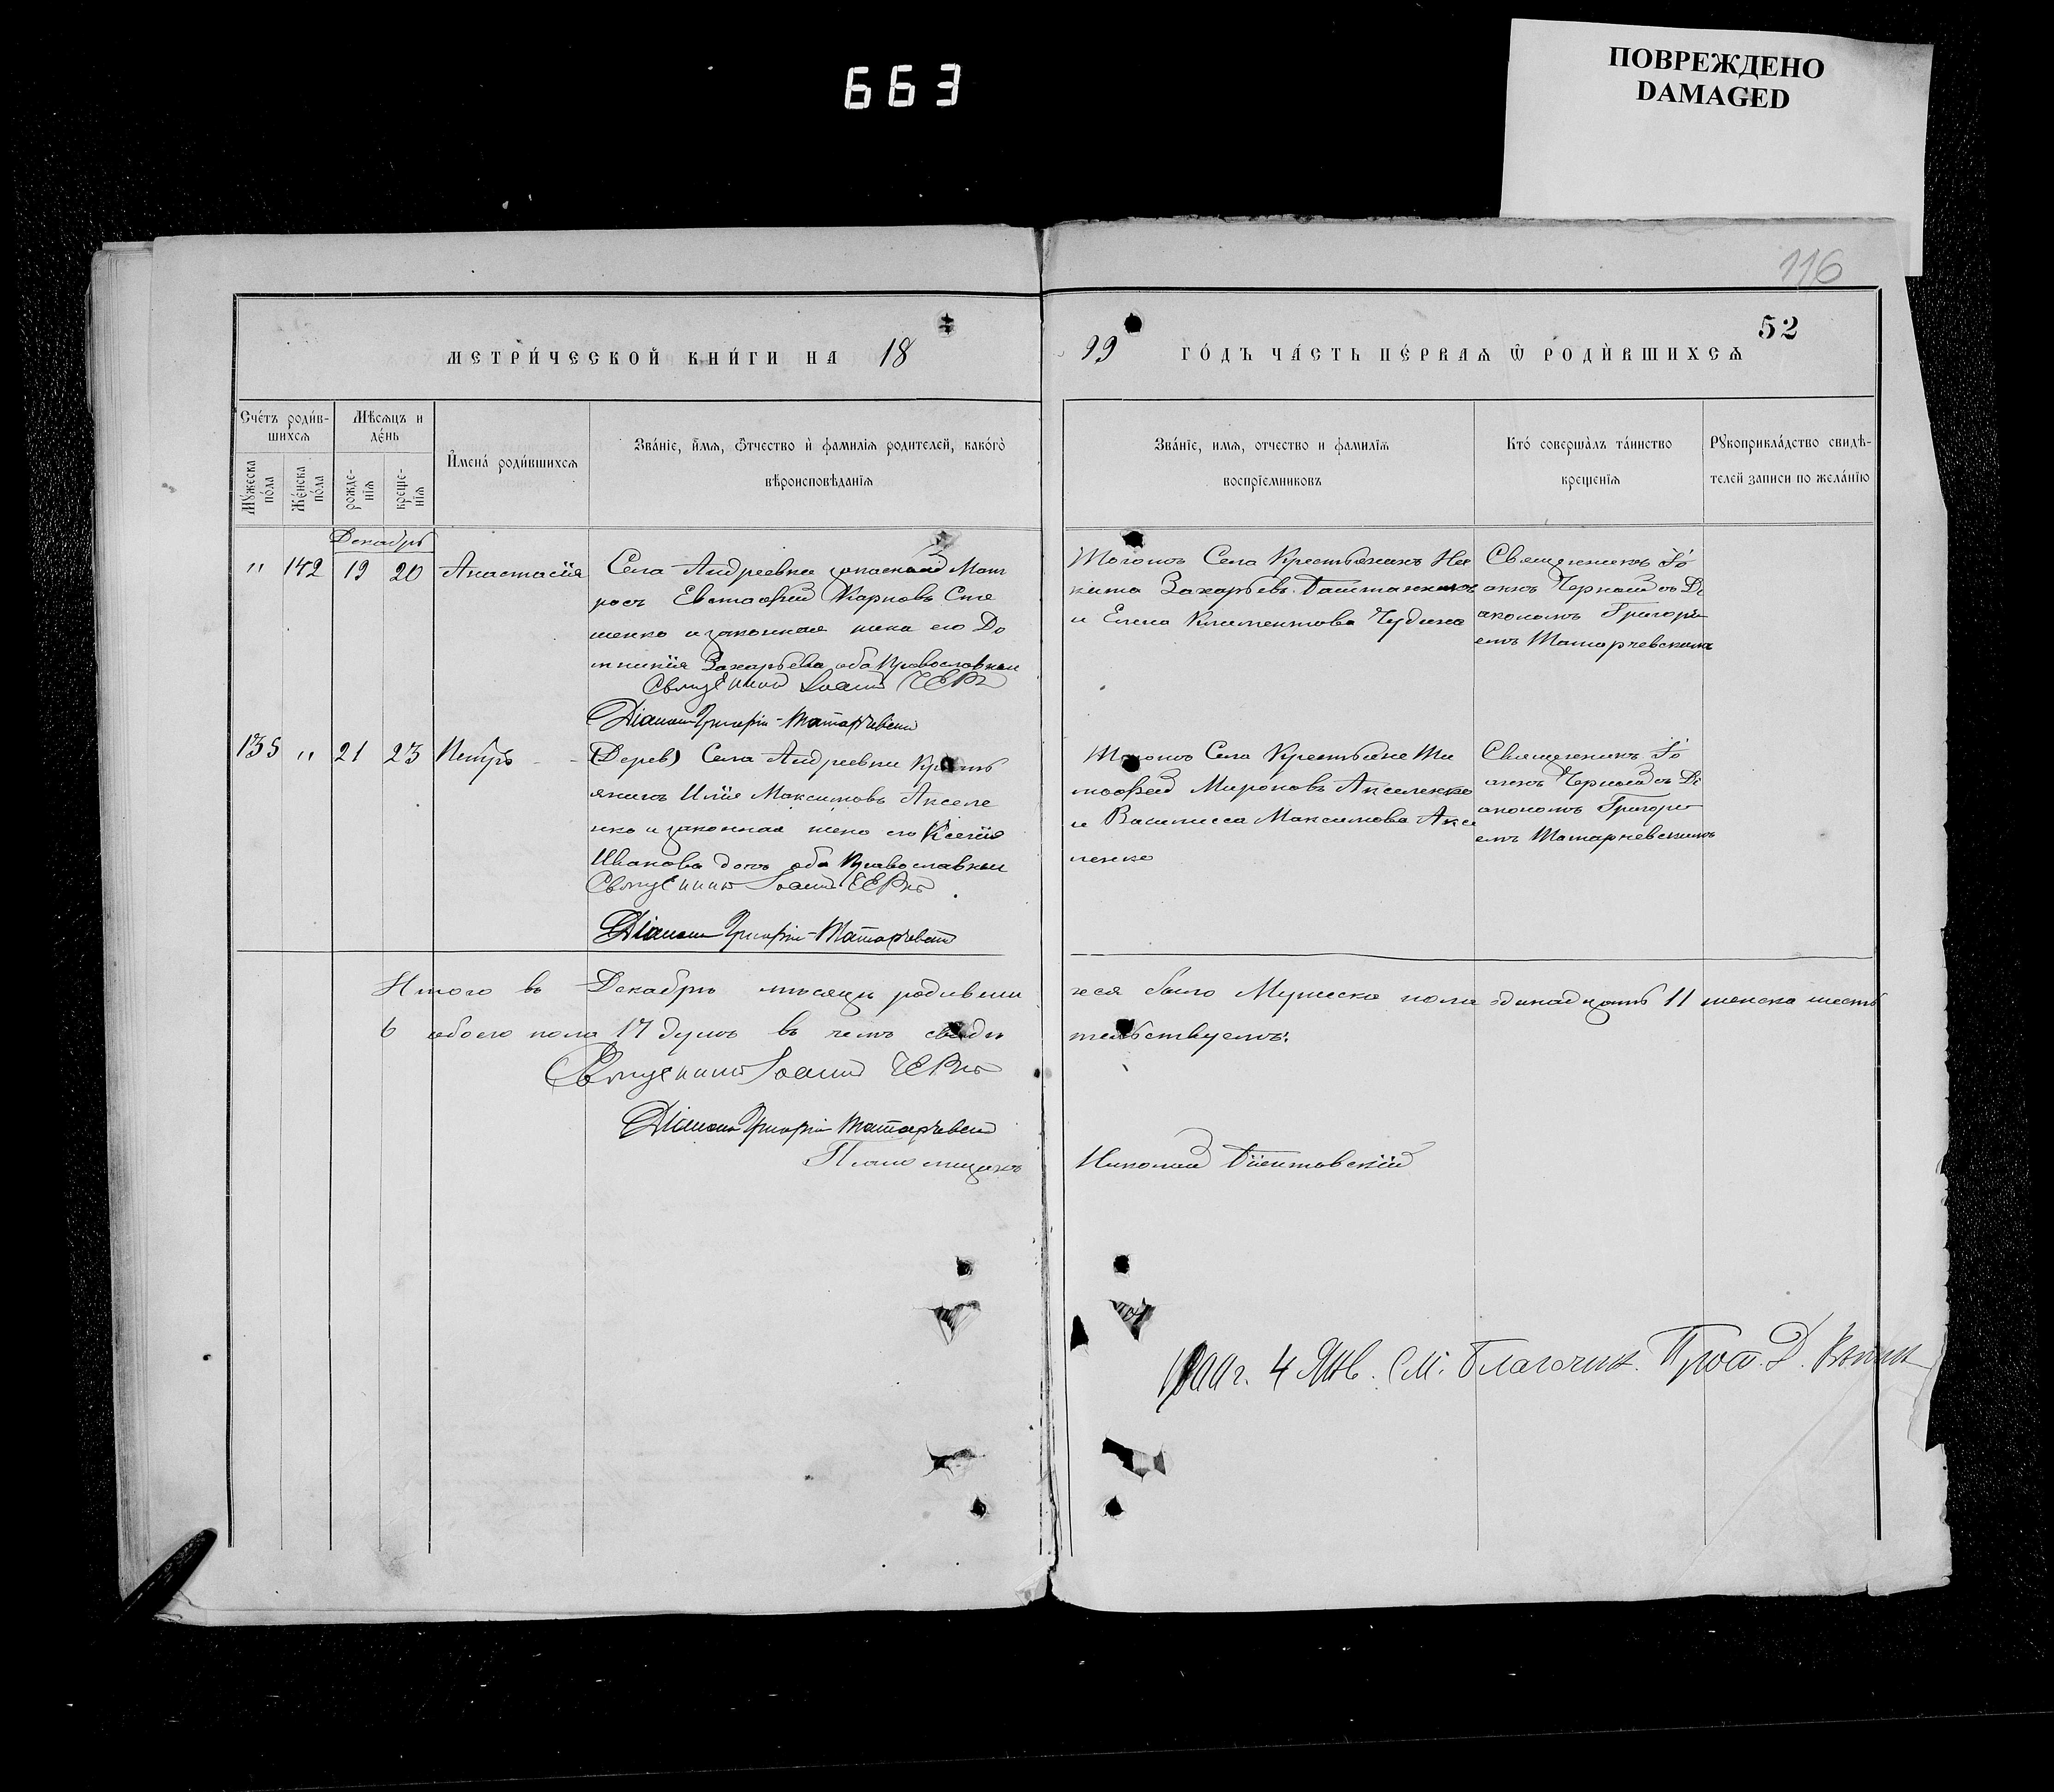 663
ПОВРЕЖДЕНО
DAMAGED
116
52
МЕТРИ́ЧЕСКОЙ КНИ́ГИ НА 18
99 ГО́ДЪ ЧА́СТЬ ПЕ́РВАѦ Ѿ РОДИ́ВШИХСѦ
Сче́тъ роди́в-
шихсѧ
Мꙋ́жеска
по́ла
Же́нска
по́ла
Мѣ́сѧцъ и
де́нь
рожде-
нїѧ
креще-
нїѧ
И҆мена́ роди́вшихсѧ
Зва́нїе, и҆́мѧ, ѻ҆́тчество и҆ фамилїѧ родителей, како́гѡ
вѣроисповѣданїѧ
Зва́нїе, имѧ, отчество и фамилїѧ
воспрїемниковъ
Кто́ соверша́лъ та́инство
крещенїѧ
Рꙋкоприкла́дство свидѣ-
телей записи по жела́нїю
Декабрь
" 142 19 20 Анастасія
Села Андреевки запасный Мат
росъ Евстафій Карповъ Сте
ценко и законная жена его До
мникія Захарьева оба Православныи
Священникъ Іоаннъ ЧЕРн
Діаконъ Григорій Татарчевскій
Тогожъ Села Крестьянинъ Ни
кита Захарьевъ Баштанникъ
и Елена Климентова Чудина
Священникъ Іо
аннъ Черный съ Ді
акономъ Григорі
емъ Татарчевскимъ
135 " 21 23 Петръ
(Дерев) Села Андреевки Кресть
янинъ Илія Максимовъ Аксене
нко и законная жена его Ксенія
Иванова оба Православныи
Священникъ Іоаннъ ЧЕРн
Діаконъ Григорій Татарчевскій
Тогожъ Села Крестьяне Ти
мофей Мироновъ Аксененко
и Василисса Максимова Аксе
ненко
Священникъ Іо
аннъ Черный съ Ді
акономъ Григорі
емъ Татарчевскимъ
Итого въ Декабрѣ мѣсяцѣ родивши
хся было Мужеска пола одинадцать 11 женска шесть
6 обоего пола 17 душъ въ чемъ свидѣ
тельствуемъ:
Священникъ Іоаннъ ЧЕРн
Діаконъ Григорій Татарчевскій
Псаломщикъ
Николай
1900 г. 4 Янв. См. Благочин. Прот. Д.